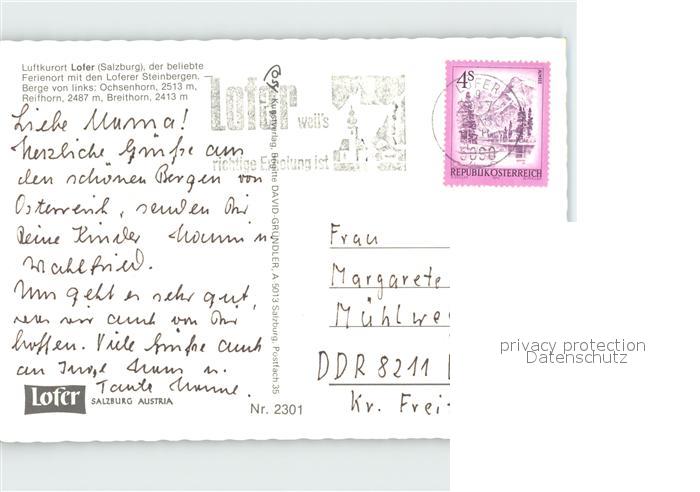 Luftkurort Lofer (Salzburg), der beliebte
Ferienort mit den Loferer Steinbergen.
Berge von links: Ochsenhorn, 2513 m,
Reifhorn, 2487 m, Breithorn, 2413 m
Lofer
weil's
richtige Erholung ist
LOFER
5090
4S
REPUBLIK ÖSTERREICH
Liebe Mama!
Herzliche Grüße aus
den schönen Bergen von
Österreich, senden Dir
Deine Kinder
Wahlfried.
Uns geht es sehr gut,
was wir auch von Dir
hoffen. Viele Grüße auch
an
Tante
Cosy Kunstverlag, Brigitte DAVID-GRÜNDLER, A 5013 Salzburg, Postfach 35
Frau
Margarete
Mühlwe
DDR 8211
Kr. Frei
Lofer
SALZBURG AUSTRIA
Nr. 2301
privacy protection
Datenschutz